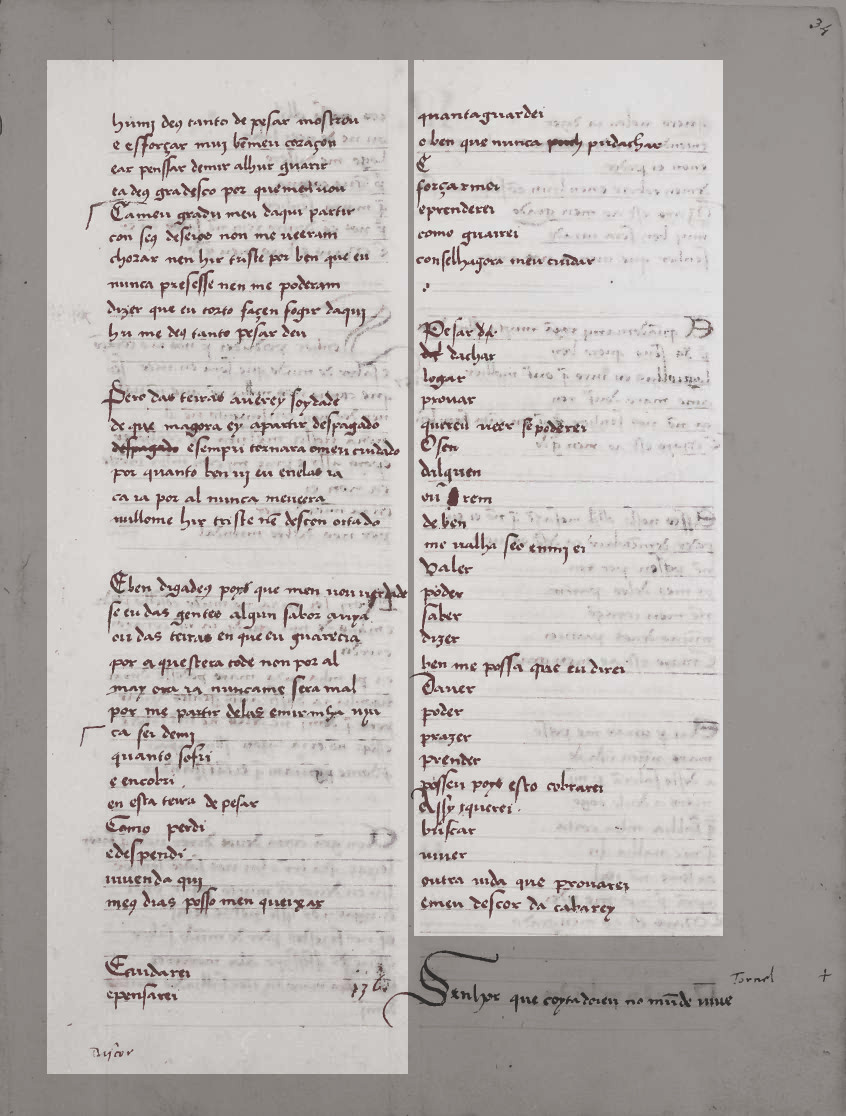 humi deus tanto de pesar mostrou
e esforçar mui ben meu coraçon
e ar penssar de mir alhur guarir
e a deus gradesco por que men vou
Ca meu gradu meu daqui partir
con seus deseios non me veeram
chorar nen hir triste por ben que eu
nunca presesse nen me poderam
dizer que eu torto façen fogir daqui
hu me deus tanto pesar deu
Pero das terras averey soydade
de que magora ey a partir despagado
e sempri tornara o meu cuidado
por quanto ben vi eu en elas ia
ca ia por al nunca me veera
nullome hir triste nen desconortado
E ben digades pois que men vou verdade
se eu das gentes algun sabor avya
ou das terras en que eu guarecia
por aquestera tode non por al
may ora ia nunca me sera mal
por me partir delas e mir mha via
ca sei de mi
quanto sofri
e encobri
en esta terra de pesar
Como perdi
e despendi
vivend aqui
meus dias posso men queixar
E cuidarei
e penssarei
quantaguardei
o ben que nunca pudachar
E
forçarmei
e prenderei
como guarrei
conselhagora meu cuidar
Pesar da
dachar
logar
provar
querei veer se poderei
O sen
dalguen
ou rem
de ben
me valha seo en mi ei
Valer
poder
saber
dizer
ben me possa que eu direi
Daver
poder
prazer
prender
posseu pois esto cobrarei
Assy querei
buscar
viver
outra vida que provarei
e meu descor dacabarey
Senhor que coytadoieu no munde vive
Tornel